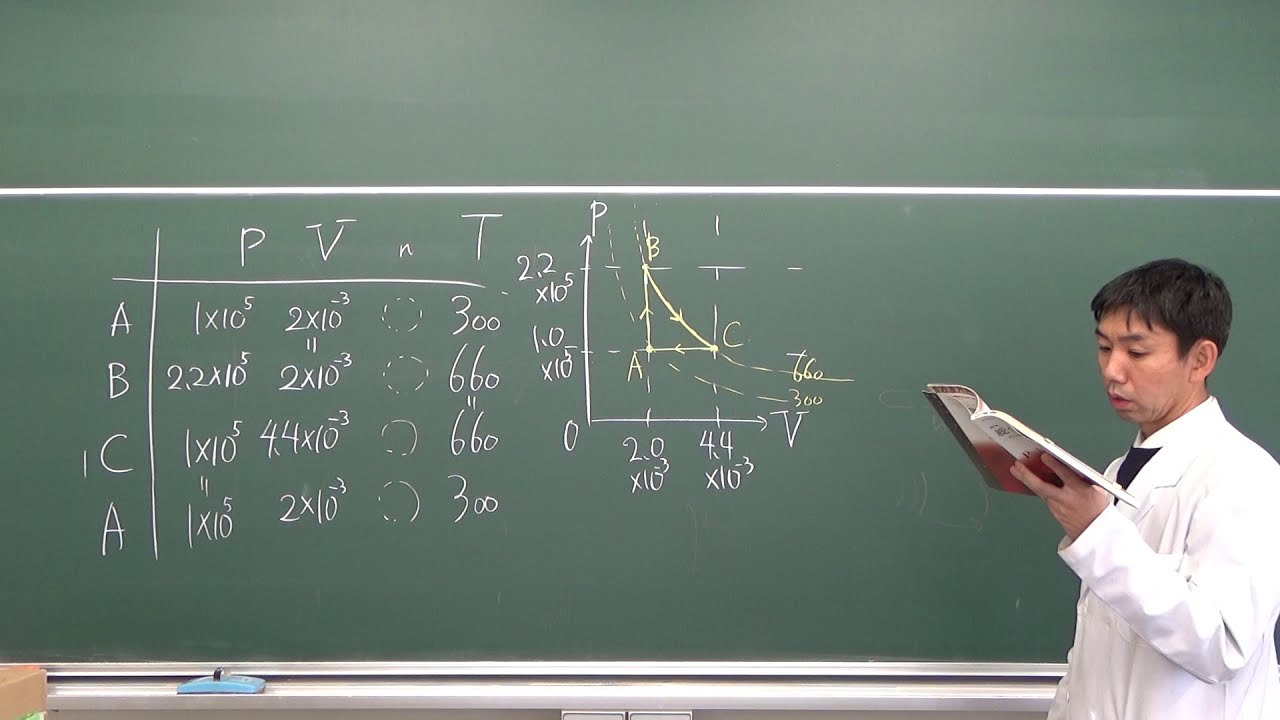 P V n T
A 1×10⁵ 2×10⁻³ 300
=
B 2.2×10⁵ 2×10⁻³ 660
=
C 1×10⁵ 4.4×10⁻³ 660
=
A 1×10⁵ 2×10⁻³ 300
P
B
2.2
×10⁵
1.0
×10⁵
A
C
660
300
0
V
2.0
×10⁻³
4.4
×10⁻³